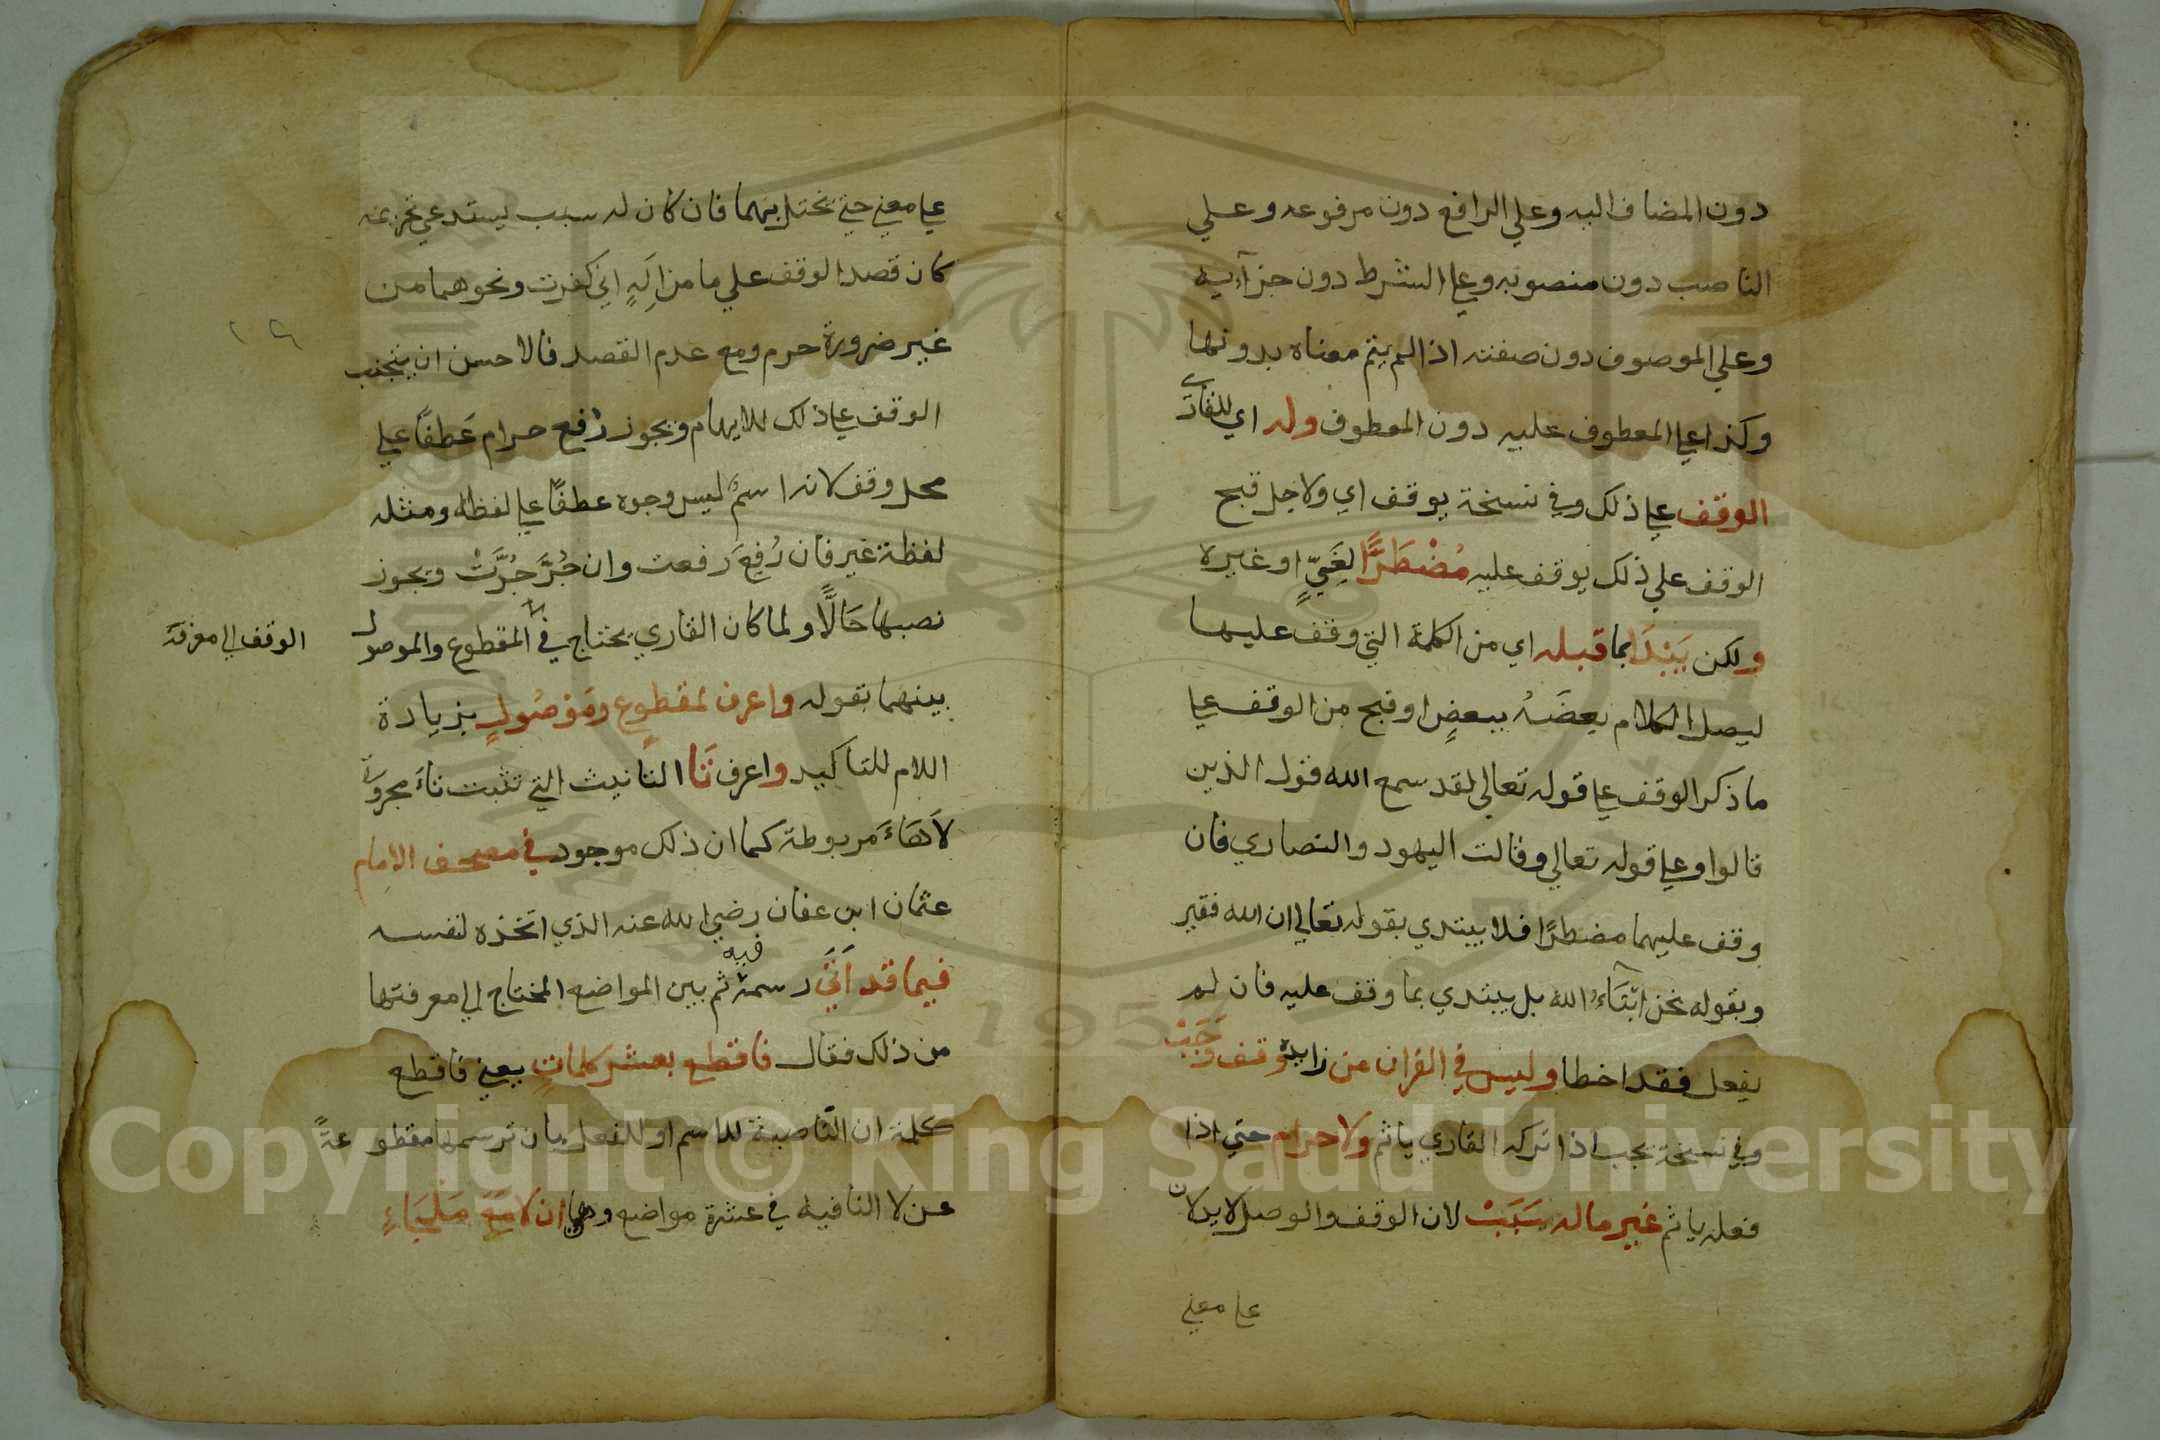 دون المضاف اليه وعلي الرافع دون مرفوعه وعلي
الناصب دون منصوبه وعلي الشرط دون جزآيه
وعلي الموصوف دون صفته اذا لم يتم معناه بدونها
وكذا علي المعطوف عليه دون المعطوف وله اي للقارئ
الوقف علي ذلك وفي نسخة يوقف اي ولاجل قبح
الوقف علي ذلك يوقف عليه مُضْطَرًّا لِعَيٍّ او غيره
ولكن يَبْدَا بما قبله اي من الكلمة التي وقف عليها
ليصل الكلام بعضَهُ ببعضٍ اوقبح من الوقف علي
ما ذكر الوقف علي قوله تعالي لقد سمع الله قول الذين
قالوا وعلي قوله تعالي وقالت اليهود والنصاري فان
وقف عليهما مضطرًا فلا يبتدي بقوله تعالي ان الله فقير
وبقوله نحن ابْنَاءُ الله بل يبتدي بما وقف عليه فان لم
يفعل فقد اخطا وليس في القران من زايدة وقف وَجَبْ
وفي نسخة يجب اذا تركه القاري ياثم ولا حرام حتي اذا
فعله ياثم غير ما له سَبَبْ لان الوقف والوصل لا يدلان
علي معني
علي معني حتي يختل بهما فان كان له سبب يستدعي تحريمه
كان قصد الوقف علي ما من اِلَهٍ اني كفرت ونحوهما من
غير ضرورة حرم ومع عدم القصد فالاحسن ان يتجنب
الوقف علي ذلك للايهام ويجوز رفع حرام عَطفًا علي
محل وقف لانه اسمُ ليس وجره عطفًا علي لفظه ومثله
لفظة غير فان رُفِعَ رفعت وان جُرَّ جُرَّتْ ويجوز
نصبها حَالًا ولما كان القاري يحتاج في المقطوع والموصول
الوقف الي معرفة
بينهما بقوله واعرف لمقطوعٍ ومَوْصُولٍ بزيادة
اللام للتاكيد واعرف تَا التانيث التي تثبت تاءَ مجرورة
لاَهَاءَ مربوطة كما ان ذلك موجود في مصحف الامام
عثمان ابن عفان رضي الله عنه الذي اتخذه لنفسه
فيما قد اَتَي رسمه فيه ثم بين المواضع المحتاج الي معرفتها
من ذلك فقال فاقطع بعشر كلماتٍ يعني فاقطع
كلمة ان الناصبة للاسم او للفعل بان ترسمها مقطوعةً
عن لا النافية في عشرة مواضع وهي ان لا مَعَ مَلْجَاءِ